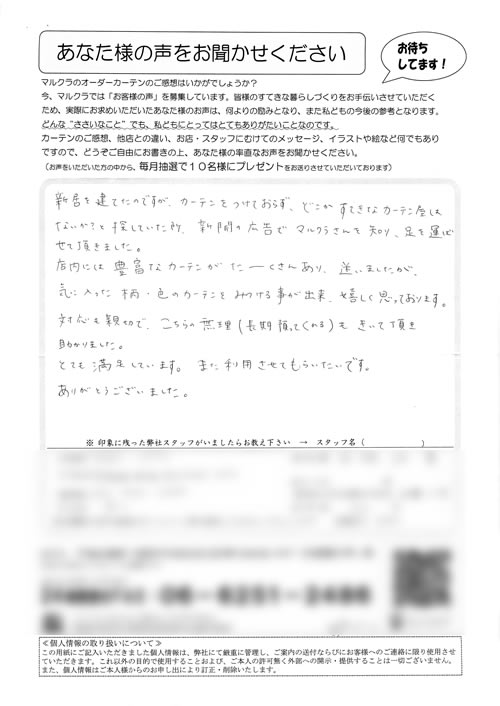 あなた様の声をお聞かせください
お待ち
してます！
マルクラのオーダーカーテンのご感想はいかがでしょうか？
今、マルクラでは「お客様の声」を募集しています。皆様のすてきな暮らしづくりをお手伝いさせていただく
ため、実際にお求めいただいたあなた様のお声は、何よりの励みとなり、また私どもの今後の参考となります。
どんな“ささいなこと”でも、私どもにとってはとてもありがたいことなのです。
カーテンのご感想、他店との違い、お店・スタッフにむけてのメッセージ、イラストや絵など何でもあり
ですので、どうぞご自由にお書きの上、あなた様の率直なお声をお聞かせください。
（お声をいただいた方の中から、毎月抽選で10名様にプレゼントをお送りさせていただいております）
新居を建てたのですが、カーテンをつけておらず、どこかすてきなカーテン屋は
ないか？と探していた所、新聞の広告でマルクラさんを知り、足を運ば
せて頂きました。
店内には豊富なカーテンがたーくさんあり、迷いましたが、
気に入った柄・色のカーテンをみつける事が出来、嬉しく思っております。
対応も親切で、こちらの無理(長期預ってくれる)もきいて頂き
助かりました。
とても満足しています。また利用させてもらいたいです。
ありがとうございました。
※ 印象に残った弊社スタッフがいましたらお教え下さい → スタッフ名（ ）
≪個人情報の取り扱いについて≫
この用紙にご記入いただきました個人情報は、弊社にて厳重に管理し、ご案内の送付ならびにお客様へのご連絡に限り使用させ
ていただきます。これ以外の目的で使用することおよび、ご本人の許可無く外部への開示・提供することは一切ございません。
また、個人情報はご本人様からのお申し出により訂正・削除いたします。